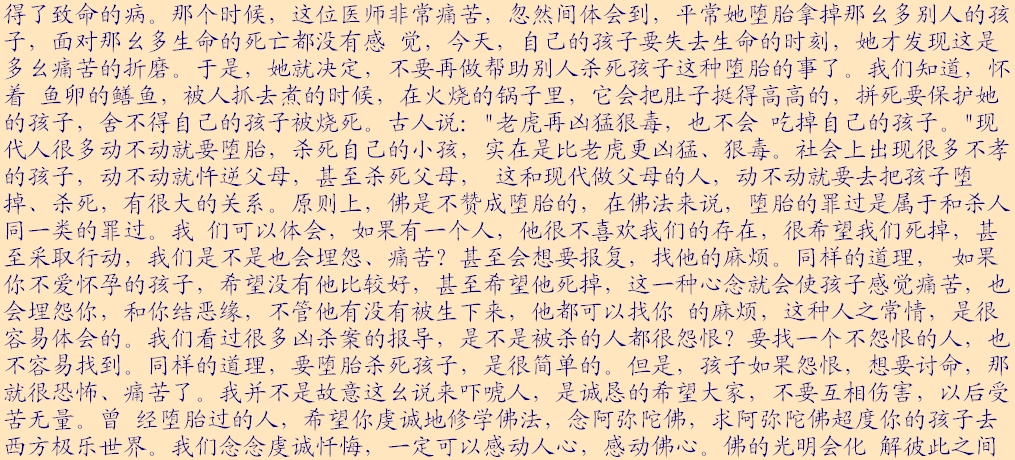 得了致命的病。那个时候，这位医师非常痛苦，忽然间体会到，平常她堕胎拿掉那幺多别人的孩
子，面对那幺多生命的死亡都没有感 觉，今天，自己的孩子要失去生命的时刻，她才发现这是
多幺痛苦的折磨。于是，她就决定，不要再做帮助别人杀死孩子这种堕胎的事了。我们知道，怀
着 鱼卵的鳝鱼，被人抓去煮的时候，在火烧的锅子里，它会把肚子挺得高高的，拼死要保护她
的孩子，舍不得自己的孩子被烧死。古人说："老虎再凶猛狠毒，也不会 吃掉自己的孩子。"现
代人很多动不动就要堕胎，杀死自己的小孩，实在是比老虎更凶猛、狠毒。社会上出现很多不孝
的孩子，动不动就忤逆父母，甚至杀死父母， 这和现代做父母的人，动不动就要去把孩子堕
掉、杀死，有很大的关系。原则上，佛是不赞成堕胎的，在佛法来说，堕胎的罪过是属于和杀人
同一类的罪过。我 们可以体会，如果有一个人，他很不喜欢我们的存在，很希望我们死掉，甚
至采取行动，我们是不是也会埋怨、痛苦？甚至会想要报复，找他的麻烦。同样的道理， 如果
你不爱怀孕的孩子，希望没有他比较好，甚至希望他死掉，这一种心念就会使孩子感觉痛苦，也
会埋怨你，和你结恶缘，不管他有没有被生下来，他都可以找你 的麻烦，这种人之常情，是很
容易体会的。我们看过很多凶杀案的报导，是不是被杀的人都很怨恨？要找一个不怨恨的人，也
不容易找到。同样的道理，要堕胎杀死孩子，是很简单的。但是，孩子如果怨恨，想要讨命，那
就很恐怖、痛苦了。我并不是故意这幺说来吓唬人，是诚恳的希望大家，不要互相伤害，以后受
苦无量。曾 经堕胎过的人，希望你虔诚地修学佛法，念阿弥陀佛，求阿弥陀佛超度你的孩子去
西方极乐世界。我们念念虔诚忏悔，一定可以感动人心，感动佛心。佛的光明会化 解彼此之间